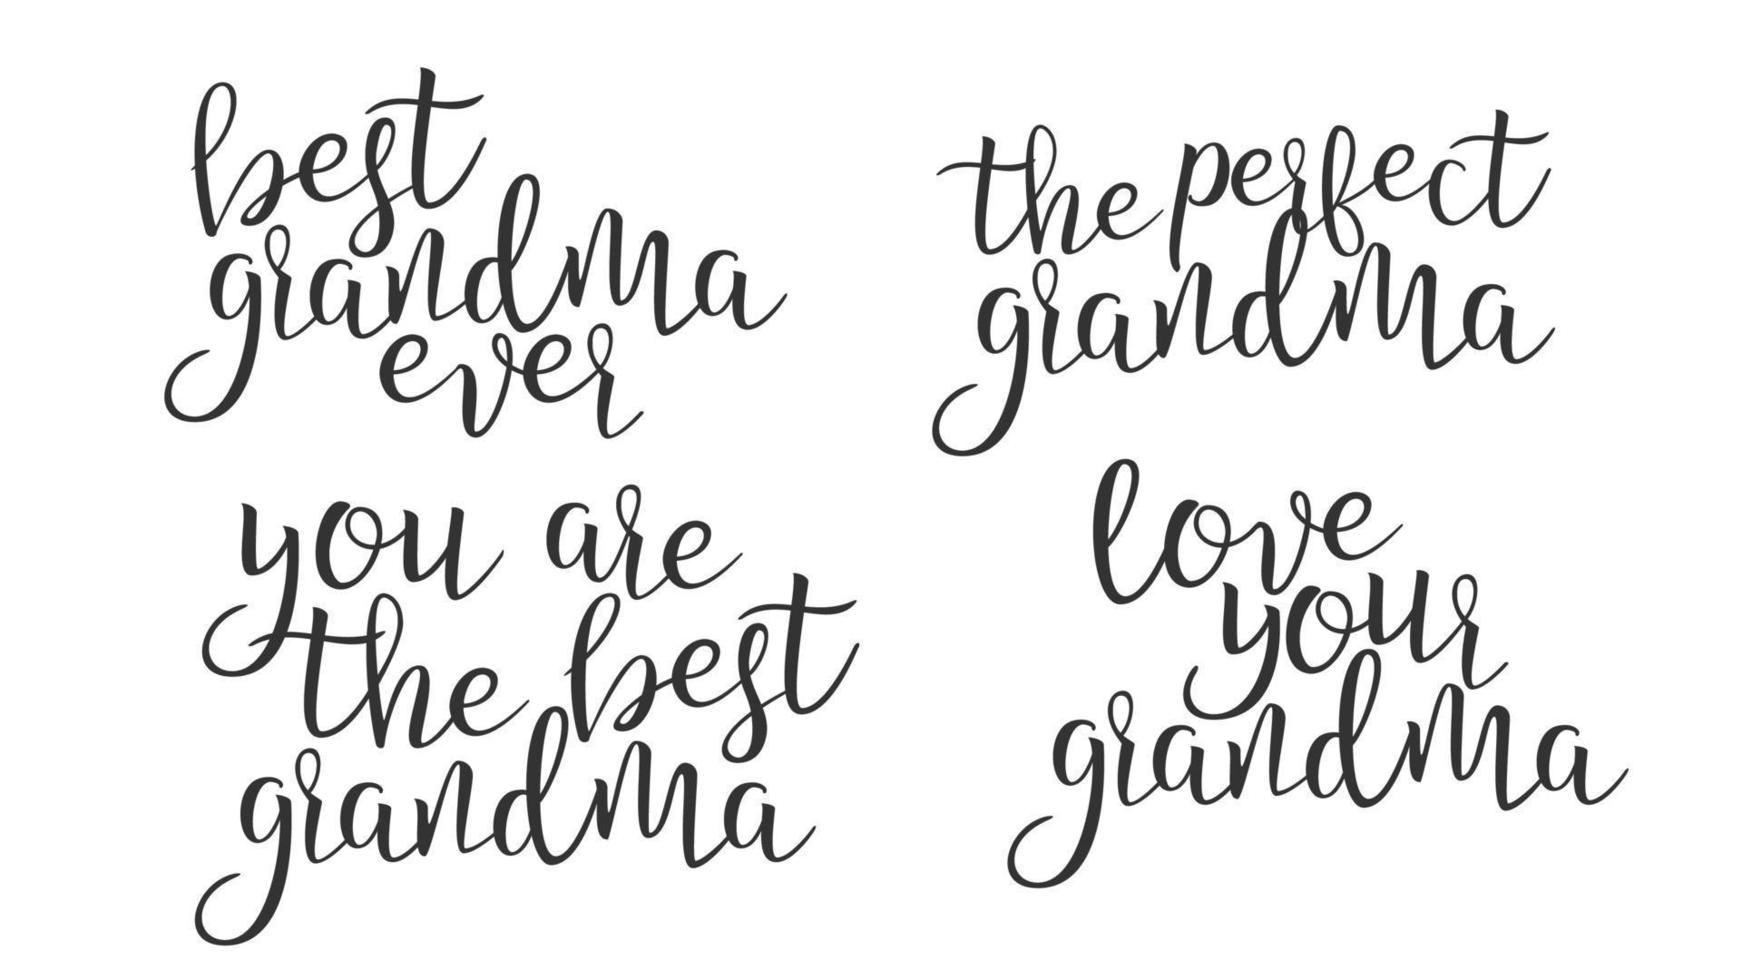 best
grandma
ever
the perfect
grandma
you are
the best
grandma
love
your
grandma